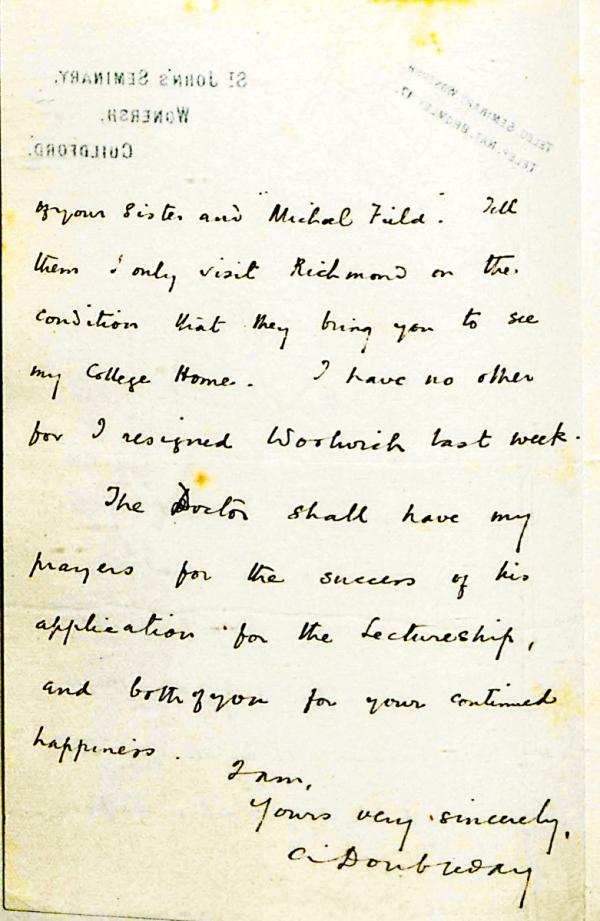 St JOHN'S SEMINARY,
WONERSH,
GUILDFORD.
of your Sister and "Michael Field". Tell
them I only visit Richmond on the
condition that they bring you to see
my College Home. I have no other
for I resigned Woolwich last week.
The Doctor shall have my
prayers for the success of his
application for the Lectureship,
and both of you for your continued
happiness.
I am,
Yours very sincerely,
A Doubleday